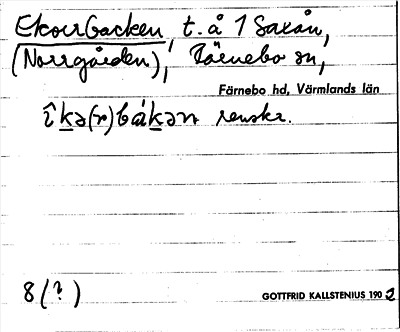 Ekorrbacken, t. å 1 Saxån,
(Norrgården), Färnebo sn,
Färnebo hd, Värmlands län
îkə(r)bákən
8(?)
GOTTFRID KALLSTENIUS 1902